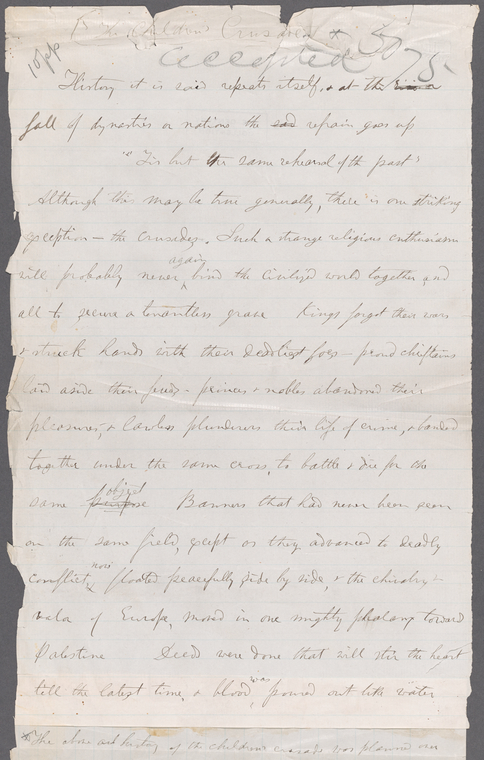 The Children's Crusade *
accepted 50
75-
10 pp
History it is said repeats itself, & at the rise &
fall of dynasties or nations the sad refrain goes up
"'Tis but the same rehearsal of the past'
Although this may be true generally, there is one striking
exception — the crusades. Such a strange religious enthusiasm
again
will probably never bind the civilized world together, and
all to secure a tenantless grave Kings forgot their wars -
& struck hands with their deadliest foes — proud chieftains
laid aside their feuds - princes & nobles abandoned their
pleasures, & lawless plunderers their life of crime, & banded
together under the same cross, to battle & die for the
object
same purpose Banners that had never been seen
on the same field, except as they advanced to deadly
now
conflict, floated peacefully side by side, & the chivalry &
valor of Europe, moved in one mighty phalanx toward
Palestine Deeds were done that will stir the heart
was
till the latest time, & blood poured out like water
* The above history of the children's crusade was planned